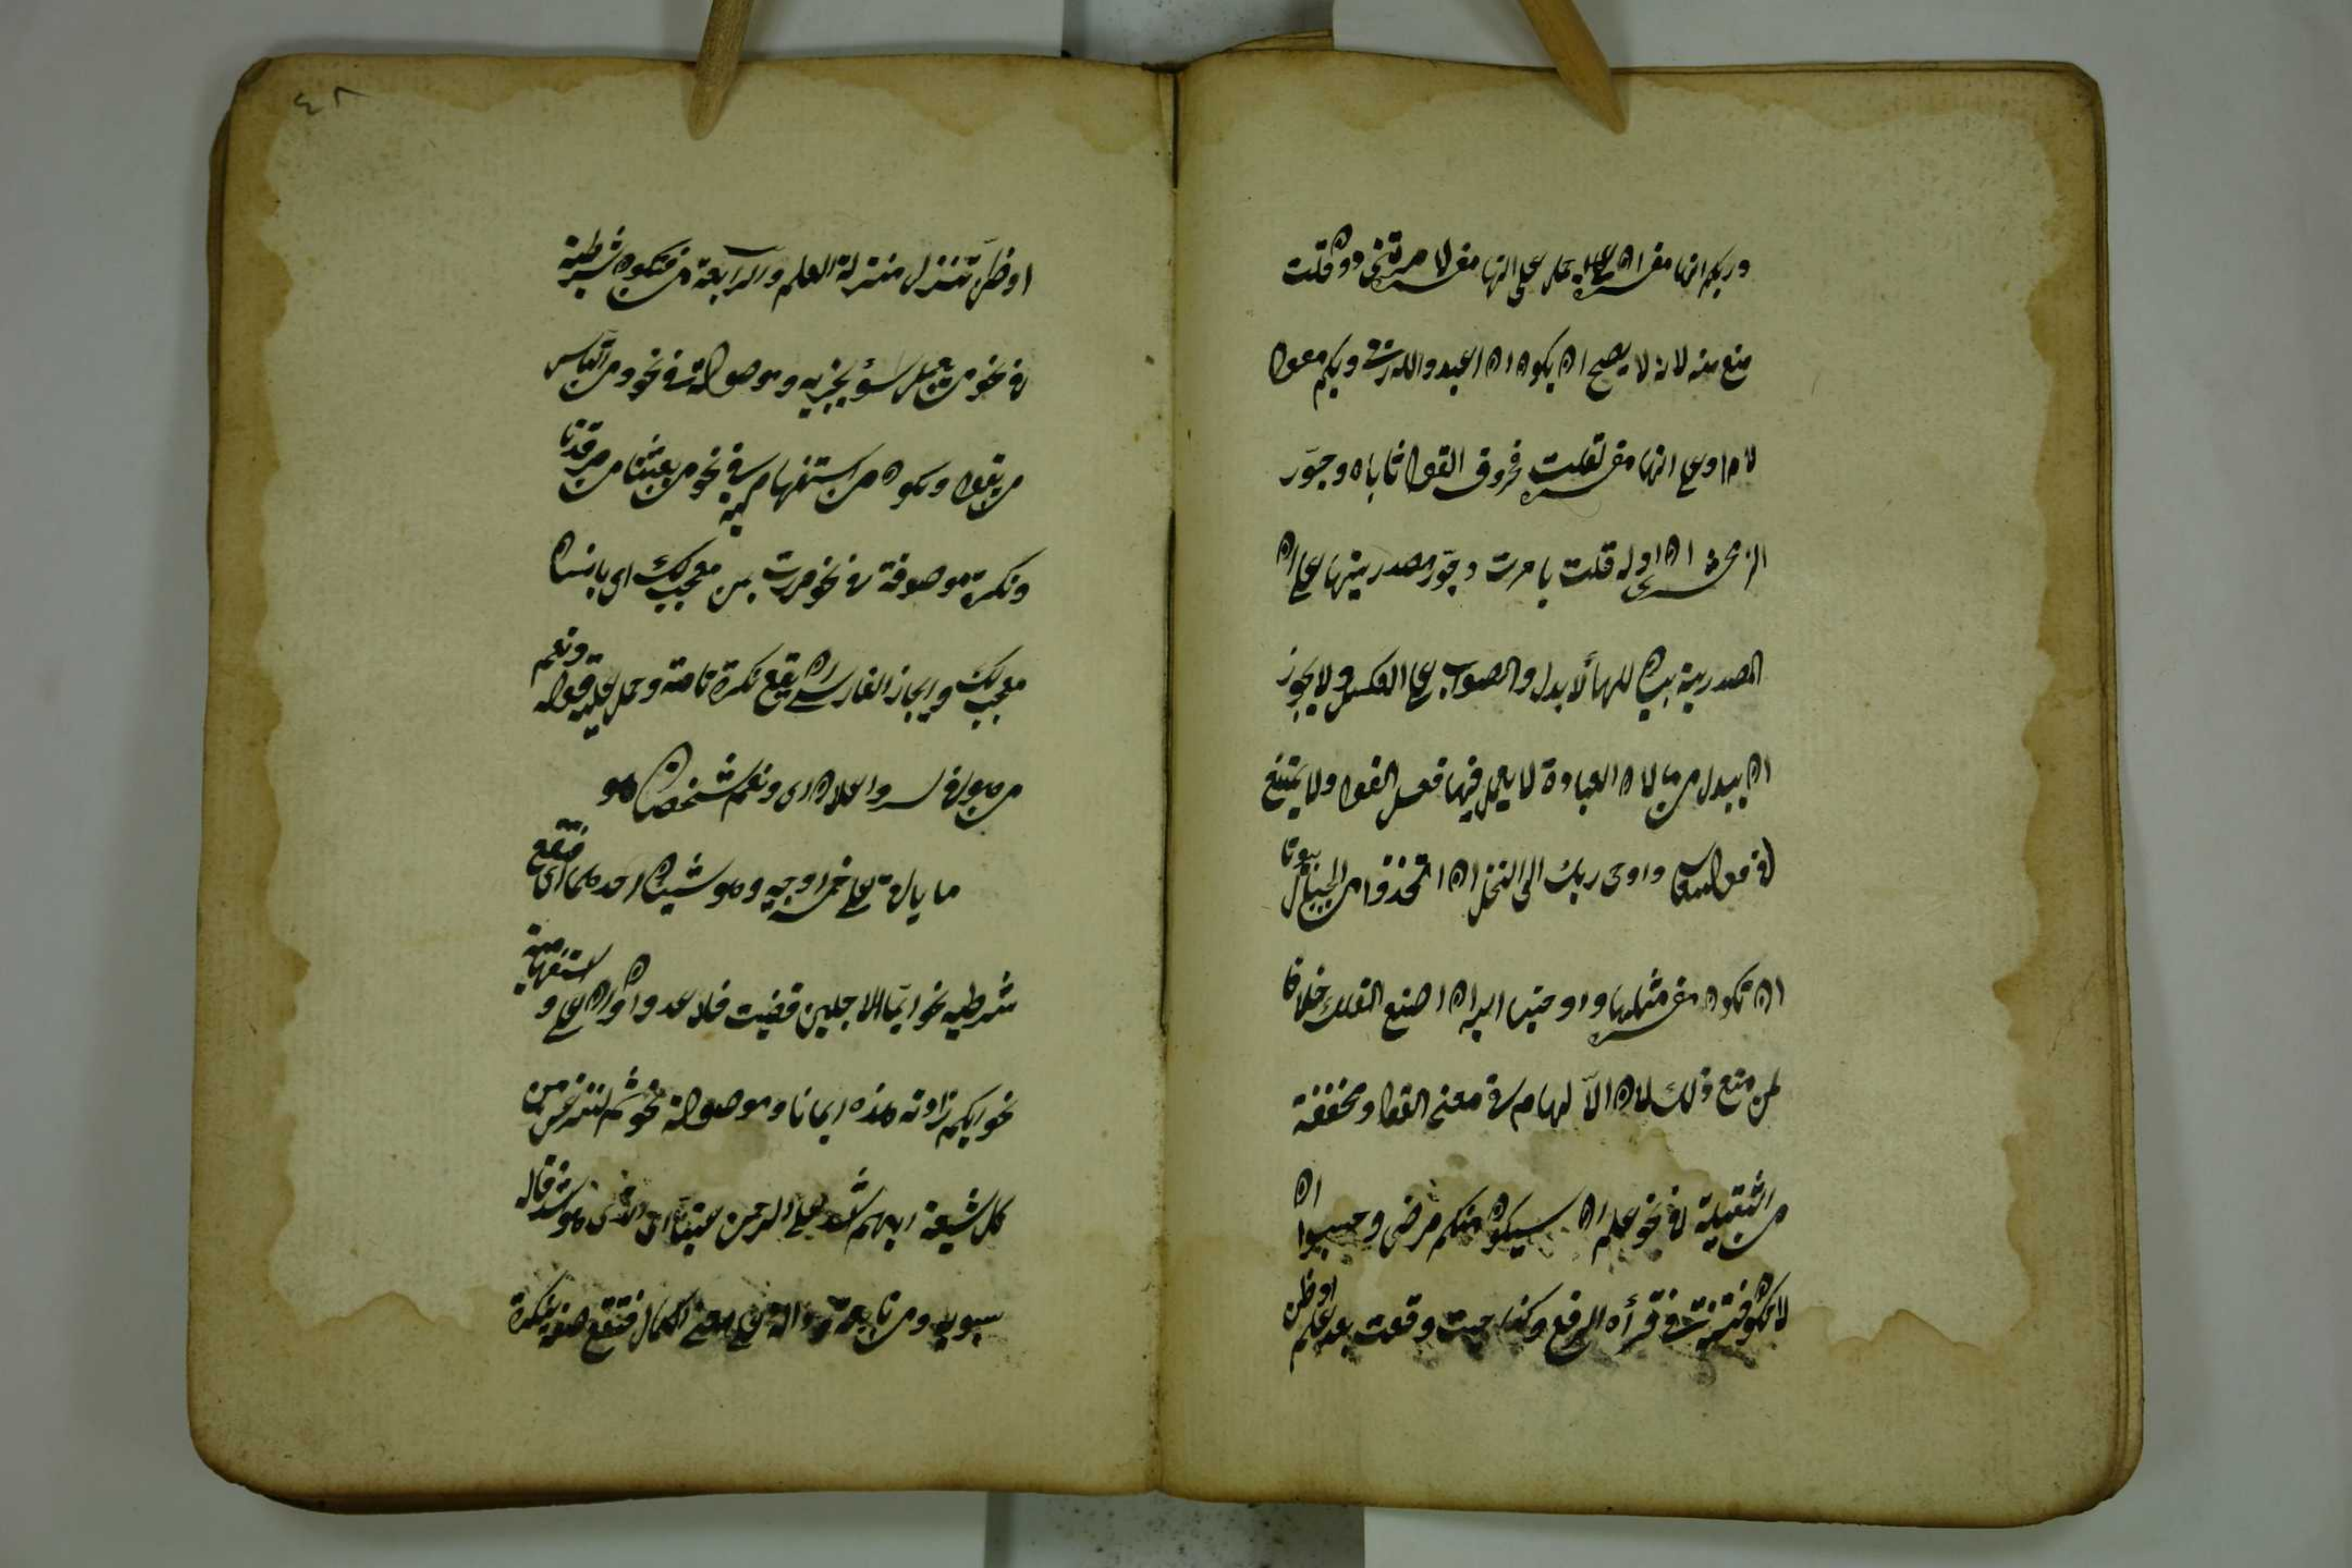 وربكم انها مفسرة ان حمل على انها مفسرة لامرتني دون قلت
منع منه لانه لا يصح ان يكون ان اعبدوا الله ربى و ربكم مقولا
لا م او على انها مفسرة لقلت فحروف القول تاباه وجوّز
الزمخشرى ان اوله قلت بامرت وجوّز مصدريتها على ان
المصدرية بيان للهاء لا بدل والصواب على العكس ولا يجوز
ان يبدل من ما لان العبادة لا يعمل فيها فعل القول ولا يمتنع
فى قوله تعالى واوحى ربك الى النحل ان اتخذى من الجبال بيوتا
ان تكون مفسرة مثلها واوحينا اليه ان اصنع الفلك خلافا
لمن منع ذلك لان الالهام فى معنى القول ومخففة
من الثقيلة فى نحو علم ان سيكون منكم مرضى وحسبوا ان
لا تكون فتنة فى قرأه الرفع وكذا حيث وقعت بعد علم او ظن
٤٨
او ظن تنزل منزلة العلم والرابعة من فتكون شرطية
فى نحو من يعمل سؤ يجز به وموصولة فى نحو ومن الناس
من يقول وتكون من استفهامية فى نحو من بعثنا من مرقدنا
ونكرة موصوفة فى نحو مررت بمن معجب لك اى بانسان
معجب لك واجاز الفارسى ان يقع نكرة تامة وحمل عليه قوله ونعم
من هو فى سر واعلان اى ونعم شخصا هو
ما ياتى على خمسة اوجه وهو شيئان احدهما اى فتقع
شرطيه نحو ايما الاجلين قضيت فلا عدوان على و استفهامية
نحو ايكم زادته هذه ايمانا وموصولة نحو ثم لننزعن من
كل شيعة ايهم اشد على الرحمن عتيا اى الذى هو اشد قاله
سيبويه ومن تابعه ودالة على معنى الكمال فتقع صفة لنكرة